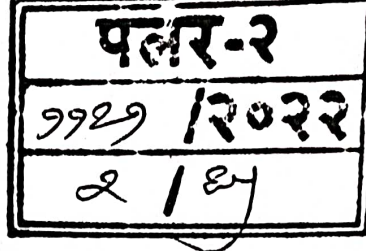 पलर-२
११२१ /२०२२
२ /